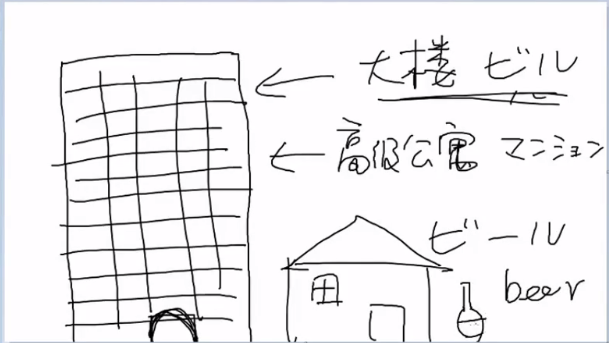 大楼 ビル
高级公寓 マンション
ビール
beer